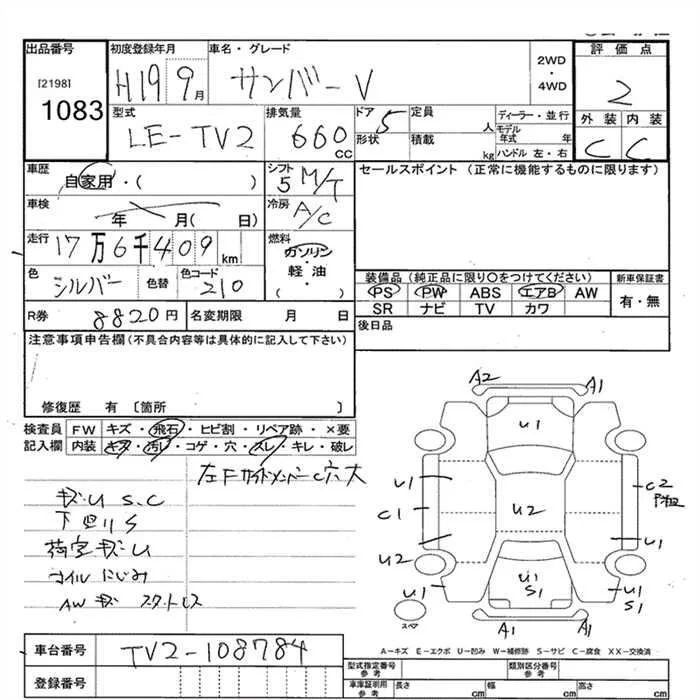 出品番号 初度登録年月 車名・グレード 評価点
[2198]
1083
H19 9月 サンバーV 2WD・4WD 2
型式 排気量 ドア 定員 ディーラー・並行 外装 内装
LE-TV2 660CC 5 人 モデル年式 年 C C
形状 積載 kg ハンドル 左・右
車歴 自家用・( ) シフト 5 M/T セールスポイント(正常に機能するものに限ります)
車検 年 月( 日) 冷房 A/C
走行 17万6千409km 燃料 ガソリン・軽油・( )
色 シルバー 色替 色コード 210
装備品(純正品に限り○をつけてください) 新車保証書
PS PW ABS エアB AW 有・無
SR ナビ TV カワ
R券 8820円 名変期限 月 日 後日品
注意事項申告欄(不具合内容等は具体的に記入して下さい)
修復歴 有〔箇所 〕
検査員 FW キズ・飛石・ヒビ割・リペア跡・×要
記入欄 内装 キズ・汚レ・コゲ・穴・スレ・キレ・破レ
左FサイドメンバーC穴大
キズ・U S.C
下廻りS
荷室キズ・U
オイルにじみ
AWキズ スタットレス
A2 A1
U1
U1 C2
C1 U2
U2 U1
U1 U1 S1 U1 S1
スペア A1 A1
A-キズ E-エクボ U-凹み W-補修跡 S-サビ C-腐食 XX-交換済
車台番号 TV2-108784
型式指定番号 参考 類別区分番号 参考
登録番号 車庫証明用 参考 長さ cm 幅 cm 高さ cm